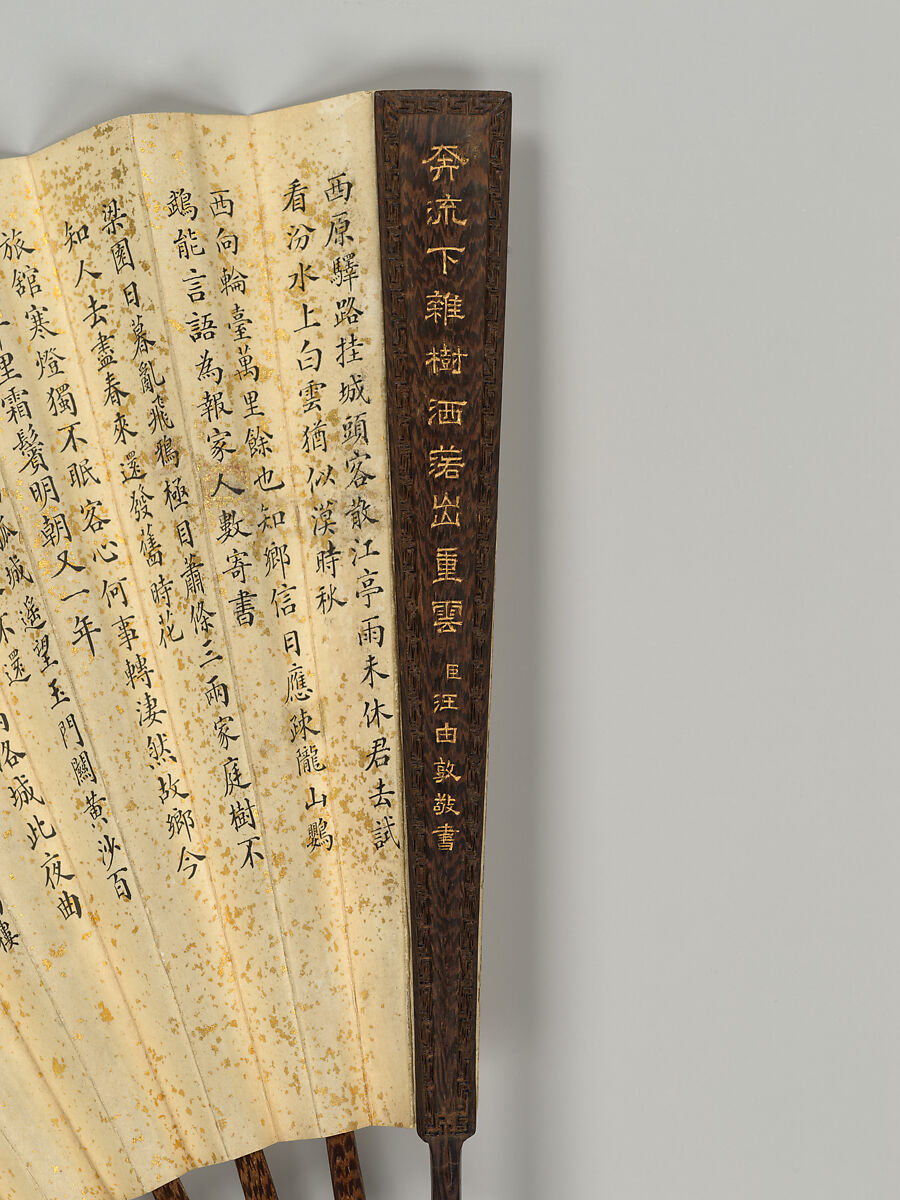 奔流下雜樹洒落出重雲
臣汪由敦敬書
西原驛路挂城頭客散江亭雨未休君去試
看汾水上白雲猶似漢時秋
西向輪臺萬里餘也知鄉信日應疎隴山鸚
鵡能言語為報家人數寄書
梁園日暮亂飛鴉極目蕭條三兩家庭樹不
知人去盡春來還發舊時花
旅舘寒燈獨不眠客心何事轉淒然故鄉今
千里霜鬢明朝又一年
孤城遙望玉門關黃沙百
不還
洛城此夜曲
樓